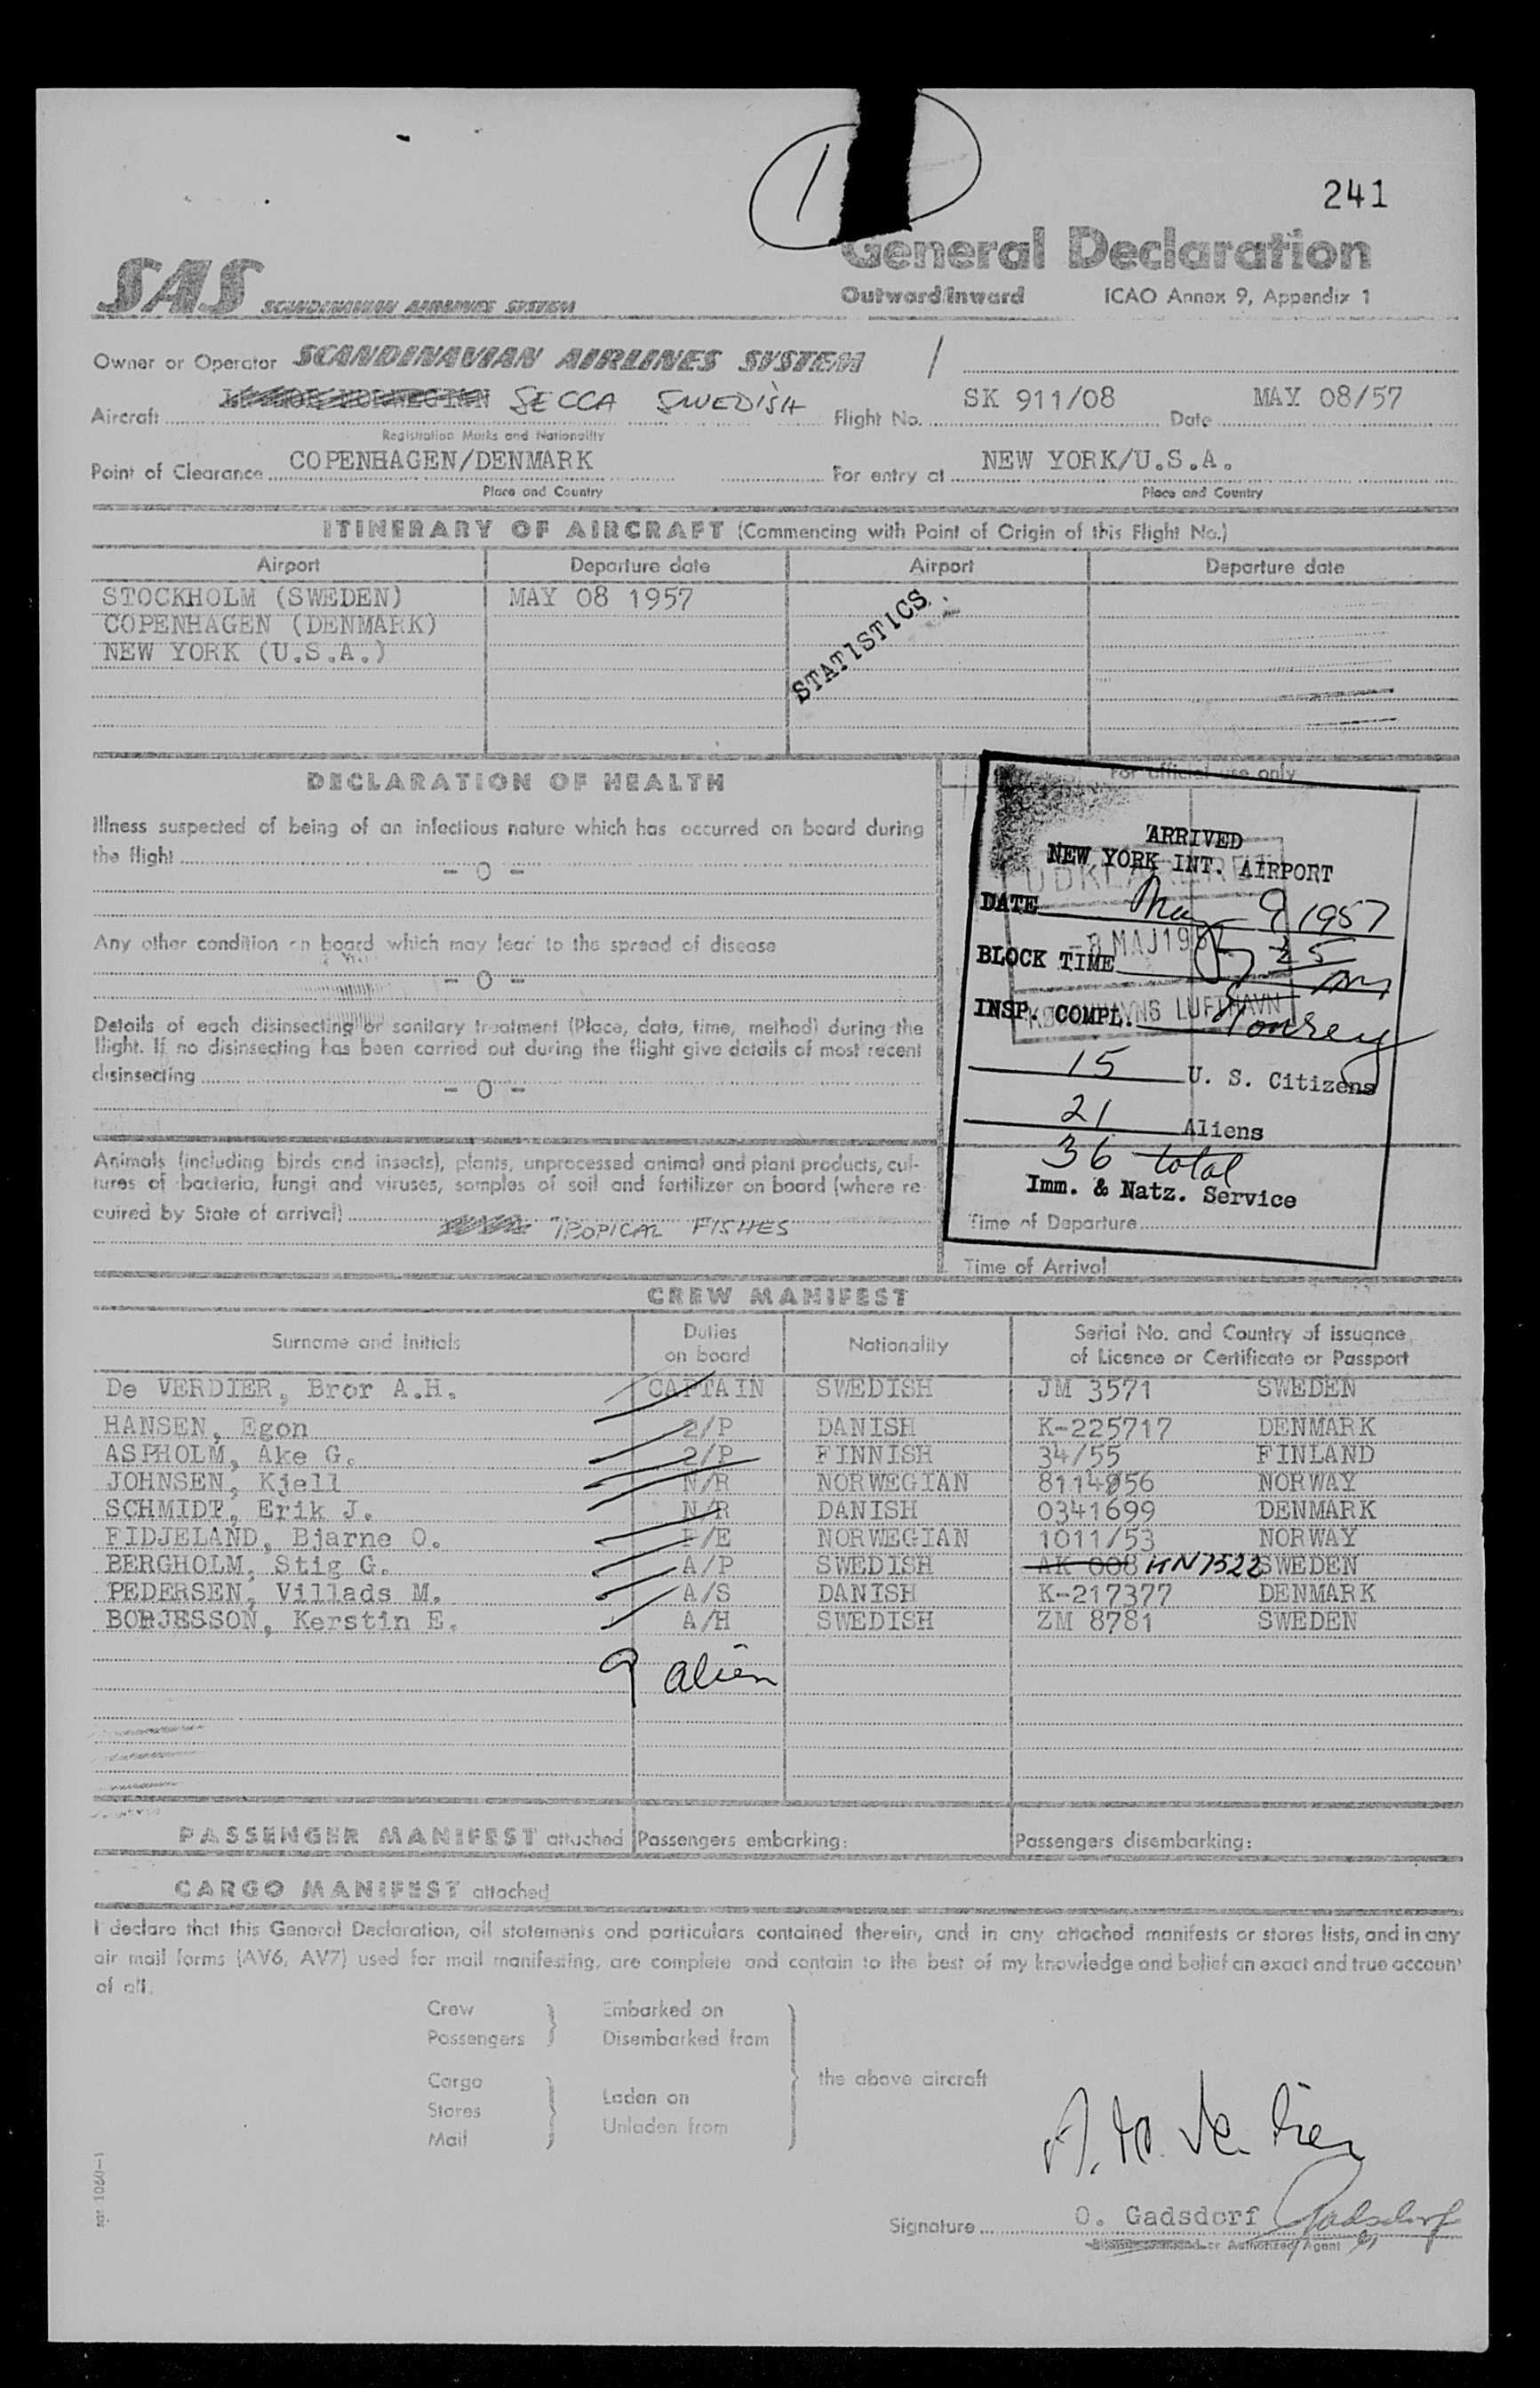 1
241
General Declaration
SAS SCANDINAVIAN AIRLINES SYSTEM
Outward/Inward ICAO Annex 9, Appendix 1
Owner or Operator SCANDINAVIAN AIRLINES SYSTEM /
Aircraft SECCA SWEDISH Flight No. SK 911/08 Date MAY 08/57
Registration Marks and Nationality
Point of Clearance COPENHAGEN/DENMARK For entry at NEW YORK/U.S.A.
Place and Country Place and Country
ITINERARY OF AIRCRAFT (Commencing with Point of Origin of this Flight No.)
Airport Departure date Airport Departure date
STOCKHOLM (SWEDEN) MAY 08 1957
COPENHAGEN (DENMARK)
NEW YORK (U.S.A.)
STATISTICS
DECLARATION OF HEALTH
For official use only
Illness suspected of being of an infectious nature which has occurred on board during
the flight - 0 -
Any other condition on board which may lead to the spread of disease
- 0 -
Details of each disinsecting or sanitary treatment (Place, date, time, method) during the
flight. If no disinsecting has been carried out during the flight give details of most recent
disinsecting - 0 -
Animals (including birds and insects), plants, unprocessed animal and plant products, cul-
tures of bacteria, fungi and viruses, samples of soil and fertilizer on board (where re-
quired by State of arrival) TROPICAL FISHES
ARRIVED
NEW YORK INT. AIRPORT
DATE May 9 1957
- 8 MAJ 195
BLOCK TIME 25
KØBENHAVNS LUFTHAVN
INSP. COMPL.
15 U. S. Citizens
21 Aliens
36 total
Imm. & Natz. Service
Time of Departure
Time of Arrival
CREW MANIFEST
Surname and Initials Duties on board Nationality Serial No. and Country of issuance of Licence or Certificate or Passport
De VERDIER, Bror A.H. CAPTAIN SWEDISH JM 3571 SWEDEN
HANSEN, Egon 2/P DANISH K-225717 DENMARK
ASPHOLM, Ake G. 2/P FINNISH 34/55 FINLAND
JOHNSEN, Kjell N/R NORWEGIAN 8114856 NORWAY
SCHMIDT, Erik J. N/R DANISH 0341699 DENMARK
FIDJELAND, Bjarne O. F/E NORWEGIAN 1011/53 NORWAY
BERGHOLM, Stig G. A/P SWEDISH AK 008 KN7522 SWEDEN
PEDERSEN, Villads M. A/S DANISH K-217377 DENMARK
BORJESSON, Kerstin E. A/H SWEDISH ZM 8781 SWEDEN
9 alien
PASSENGER MANIFEST attached Passengers embarking: Passengers disembarking:
CARGO MANIFEST attached
I declare that this General Declaration, all statements and particulars contained therein, and in any attached manifests or stores lists, and in any
air mail forms (AV6, AV7) used for mail manifesting, are complete and contain to the best of my knowledge and belief an exact and true accoun'
of all.
Crew Embarked on
Passengers Disembarked from
Cargo the above aircraft
Stores Laden on
Mail Unladen from
sas 1060-1
Signature O. Gadsdorf Gadsdorf
or Authorized Agent